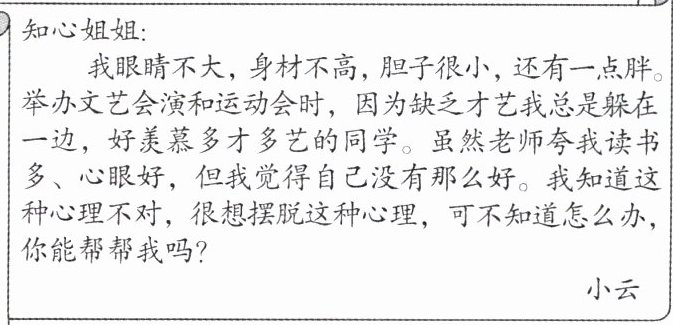 知心姐姐:
我眼睛不大，身材不高，胆子很小，还有一点胖。
举办文艺会演和运动会时，因为缺乏才艺我总是躲在
一边，好羡慕多才多艺的同学。虽然老师夸我读书
多、心眼好，但我觉得自己没有那么好。我知道这
种心理不对，很想摆脱这种心理，可不知道怎么办，
你能帮帮我吗？
小云